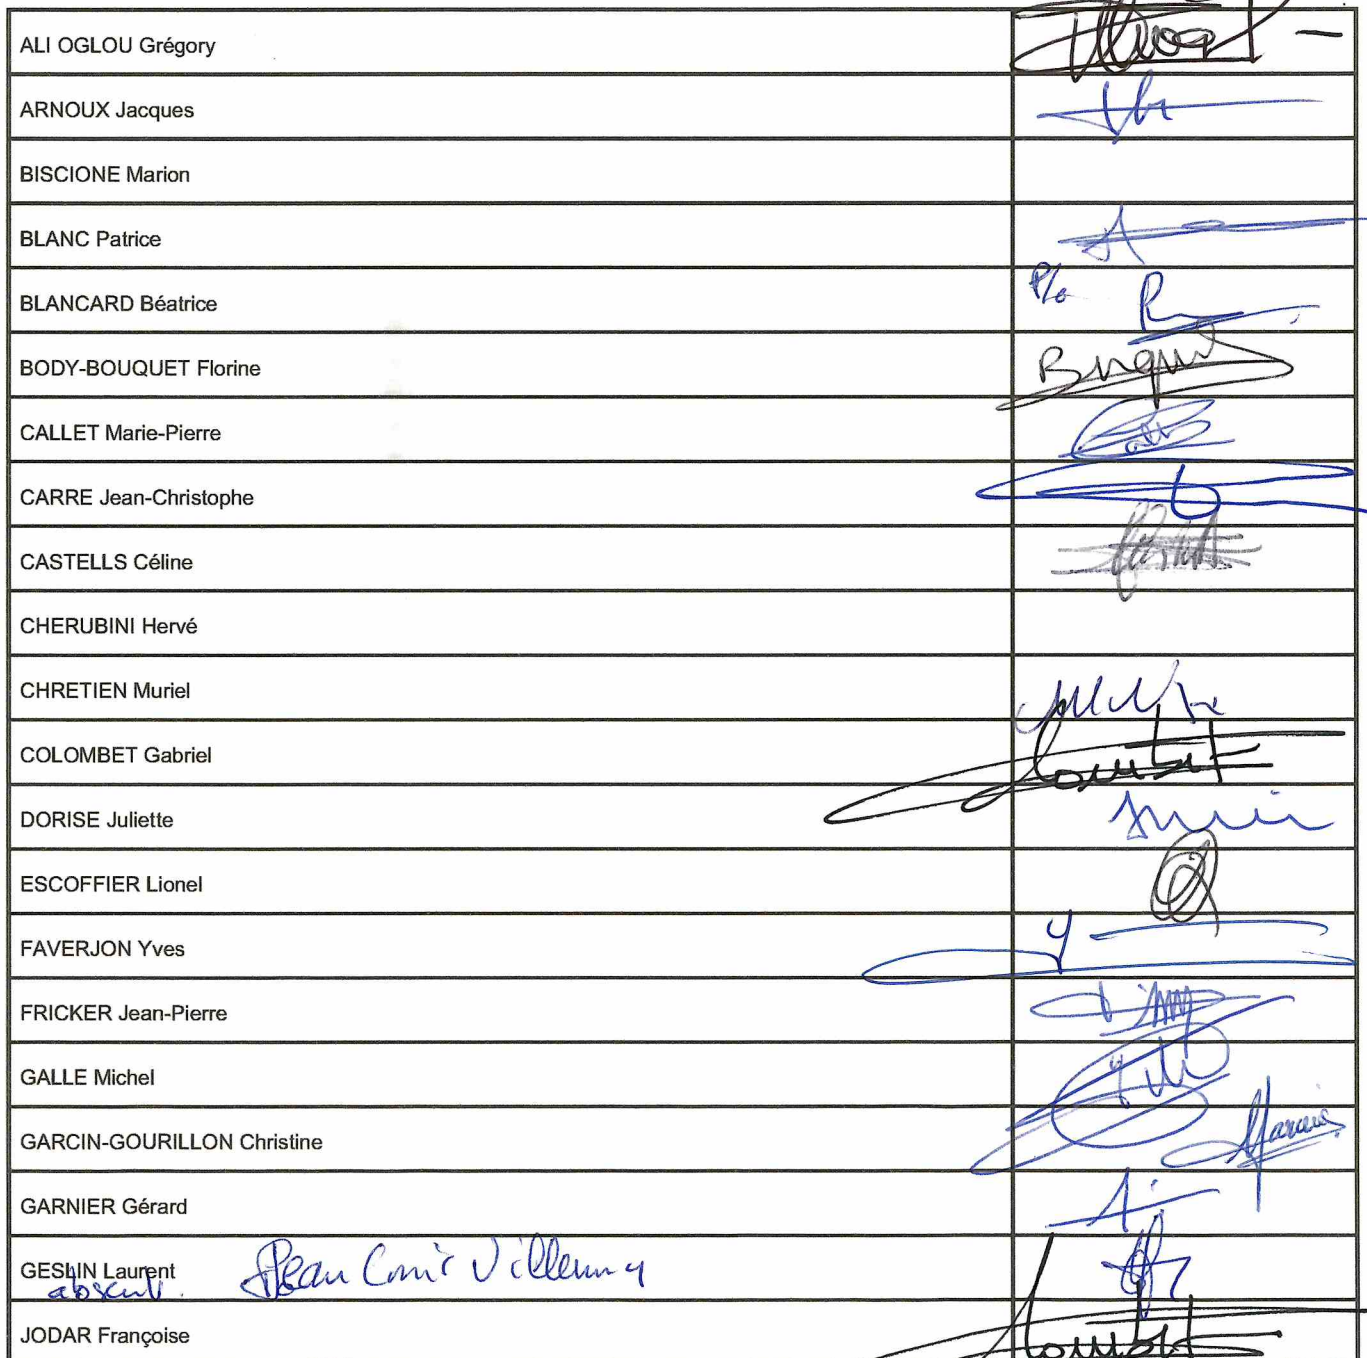 ALI OGLOU Grégory
ARNOUX Jacques
BISCIONE Marion
BLANC Patrice
BLANCARD Béatrice P/o
BODY-BOUQUET Florine
CALLET Marie-Pierre
CARRE Jean-Christophe
CASTELLS Céline
CHERUBINI Hervé
CHRETIEN Muriel
COLOMBET Gabriel
DORISE Juliette
ESCOFFIER Lionel
FAVERJON Yves
FRICKER Jean-Pierre
GALLE Michel
GARCIN-GOURILLON Christine
GARNIER Gérard
GESLIN Laurent Jean
absent.
JODAR Françoise